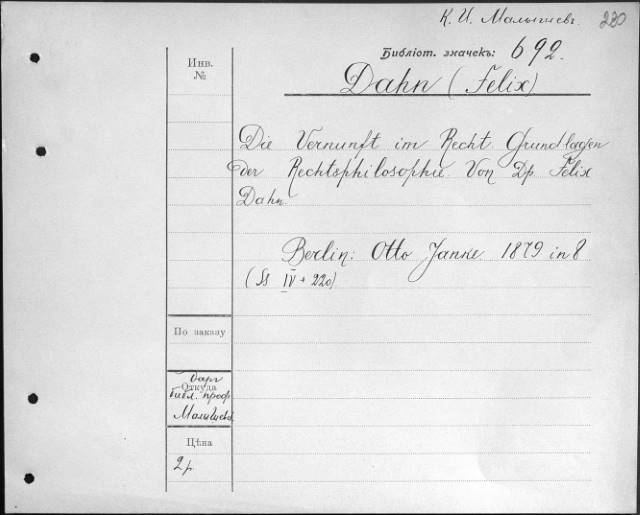 К. И. Малышевъ. 220
Библіот. значекъ: 692.
Инв.
№
Dahn (Felix)
Die Vernunft im Recht. Grundlagen
der Rechtsphilosophie. Von Dr. Felix
Dahn.
Berlin: Otto Janke. 1879 in 8
(Ss IV + 220)
По заказу
Откуда
библ. проф.
Малышева
Цѣна
2 р.